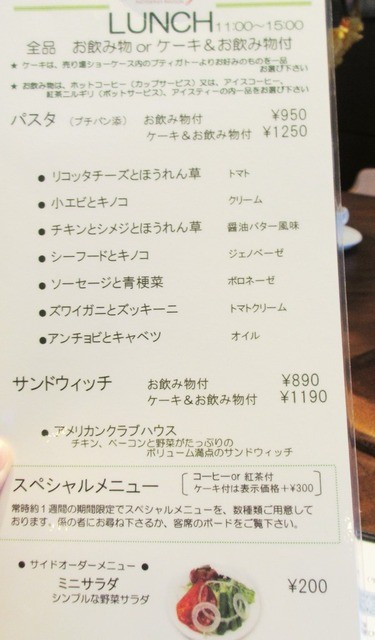 LUNCH 11:00～15:00
全品 お飲み物 or ケーキ＆お飲み物付
★ ケーキは、売り場ショーケース内のプティガトーよりお好みのものを一品
お選び下さい
★ お飲み物は、ホットコーヒー（カップサービス）又は、アイスコーヒー、
紅茶ニルギリ（ポットサービス）、アイスティーの内一品をお選び下さい
パスタ （プチパン添） お飲み物付 ¥950
ケーキ＆お飲み物付 ¥1250
● リコッタチーズとほうれん草 トマト
● 小エビとキノコ クリーム
● チキンとシメジとほうれん草 醤油バター風味
● シーフードとキノコ ジェノベーゼ
● ソーセージと青梗菜 ボロネーゼ
● ズワイガニとズッキーニ トマトクリーム
● アンチョビとキャベツ オイル
サンドウィッチ お飲み物付 ¥890
ケーキ＆お飲み物付 ¥1190
● アメリカンクラブハウス
チキン、ベーコンと野菜がたっぷりの
ボリューム満点のサンドウィッチ
スペシャルメニュー コーヒーor 紅茶付
ケーキ付は表示価格＋¥300
常時約１週間の期間限定でスペシャルメニューを、数種類ご用意して
おります。係の者にお尋ね下さるか、客席のボードをご覧下さい。
● サイドオーダーメニュー ●
ミニサラダ ¥200
シンプルな野菜サラダ